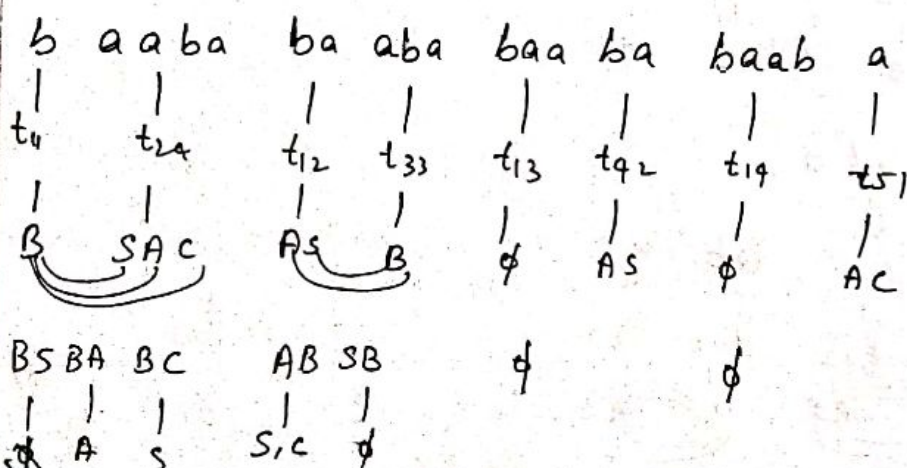 b a a ba ba aba baa ba baab a
t₁₁ t₂₄ t₁₂ t₃₃ t₁₃ t₄₂ t₁₄ t₅₁
B S A C A S B ϕ A S ϕ A C
BS BA BC AB SB ϕ ϕ
ϕ A S S,C ϕ